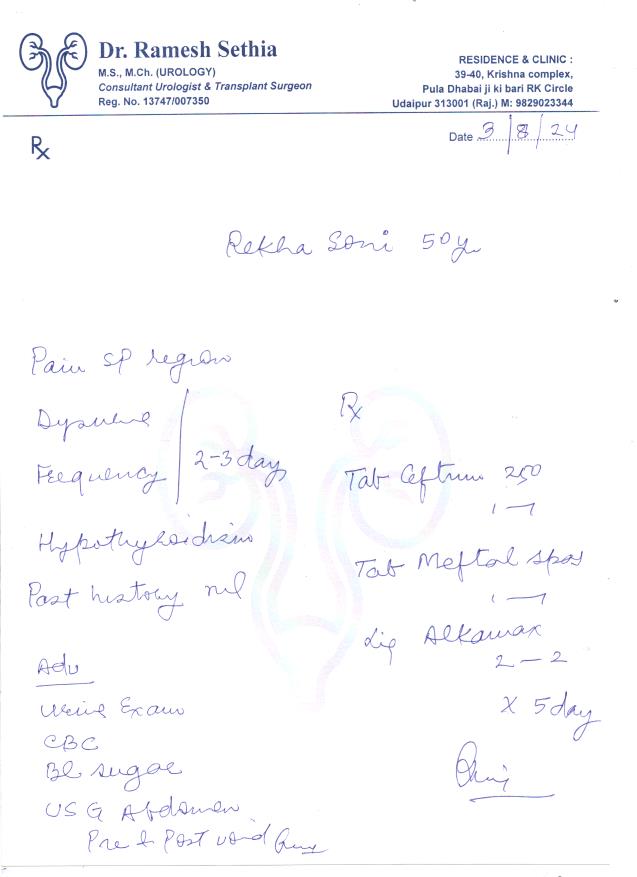 Dr. Ramesh Sethia
M.S., M.Ch. (UROLOGY)
Consultant Urologist & Transplant Surgeon
Reg. No. 13747/007350
RESIDENCE & CLINIC :
39-40, Krishna complex,
Pula Dhabai ji ki bari RK Circle
Udaipur 313001 (Raj.) M: 9829023344
Date 3/8/24
Rx
Rekha Soni 50y
Pain SP region
Dysuria
Frequency
2-3 day
Hypothyroidism
Past history nil
Adv
Urine Exam
CBC
Bl sugar
USG Abdomen
Pre & Post void
Rx
Tab Ceftum 250
1 - 1
Tab Meftal spas
1 - 1
Liq Alkamax
2 - 2
x 5 day